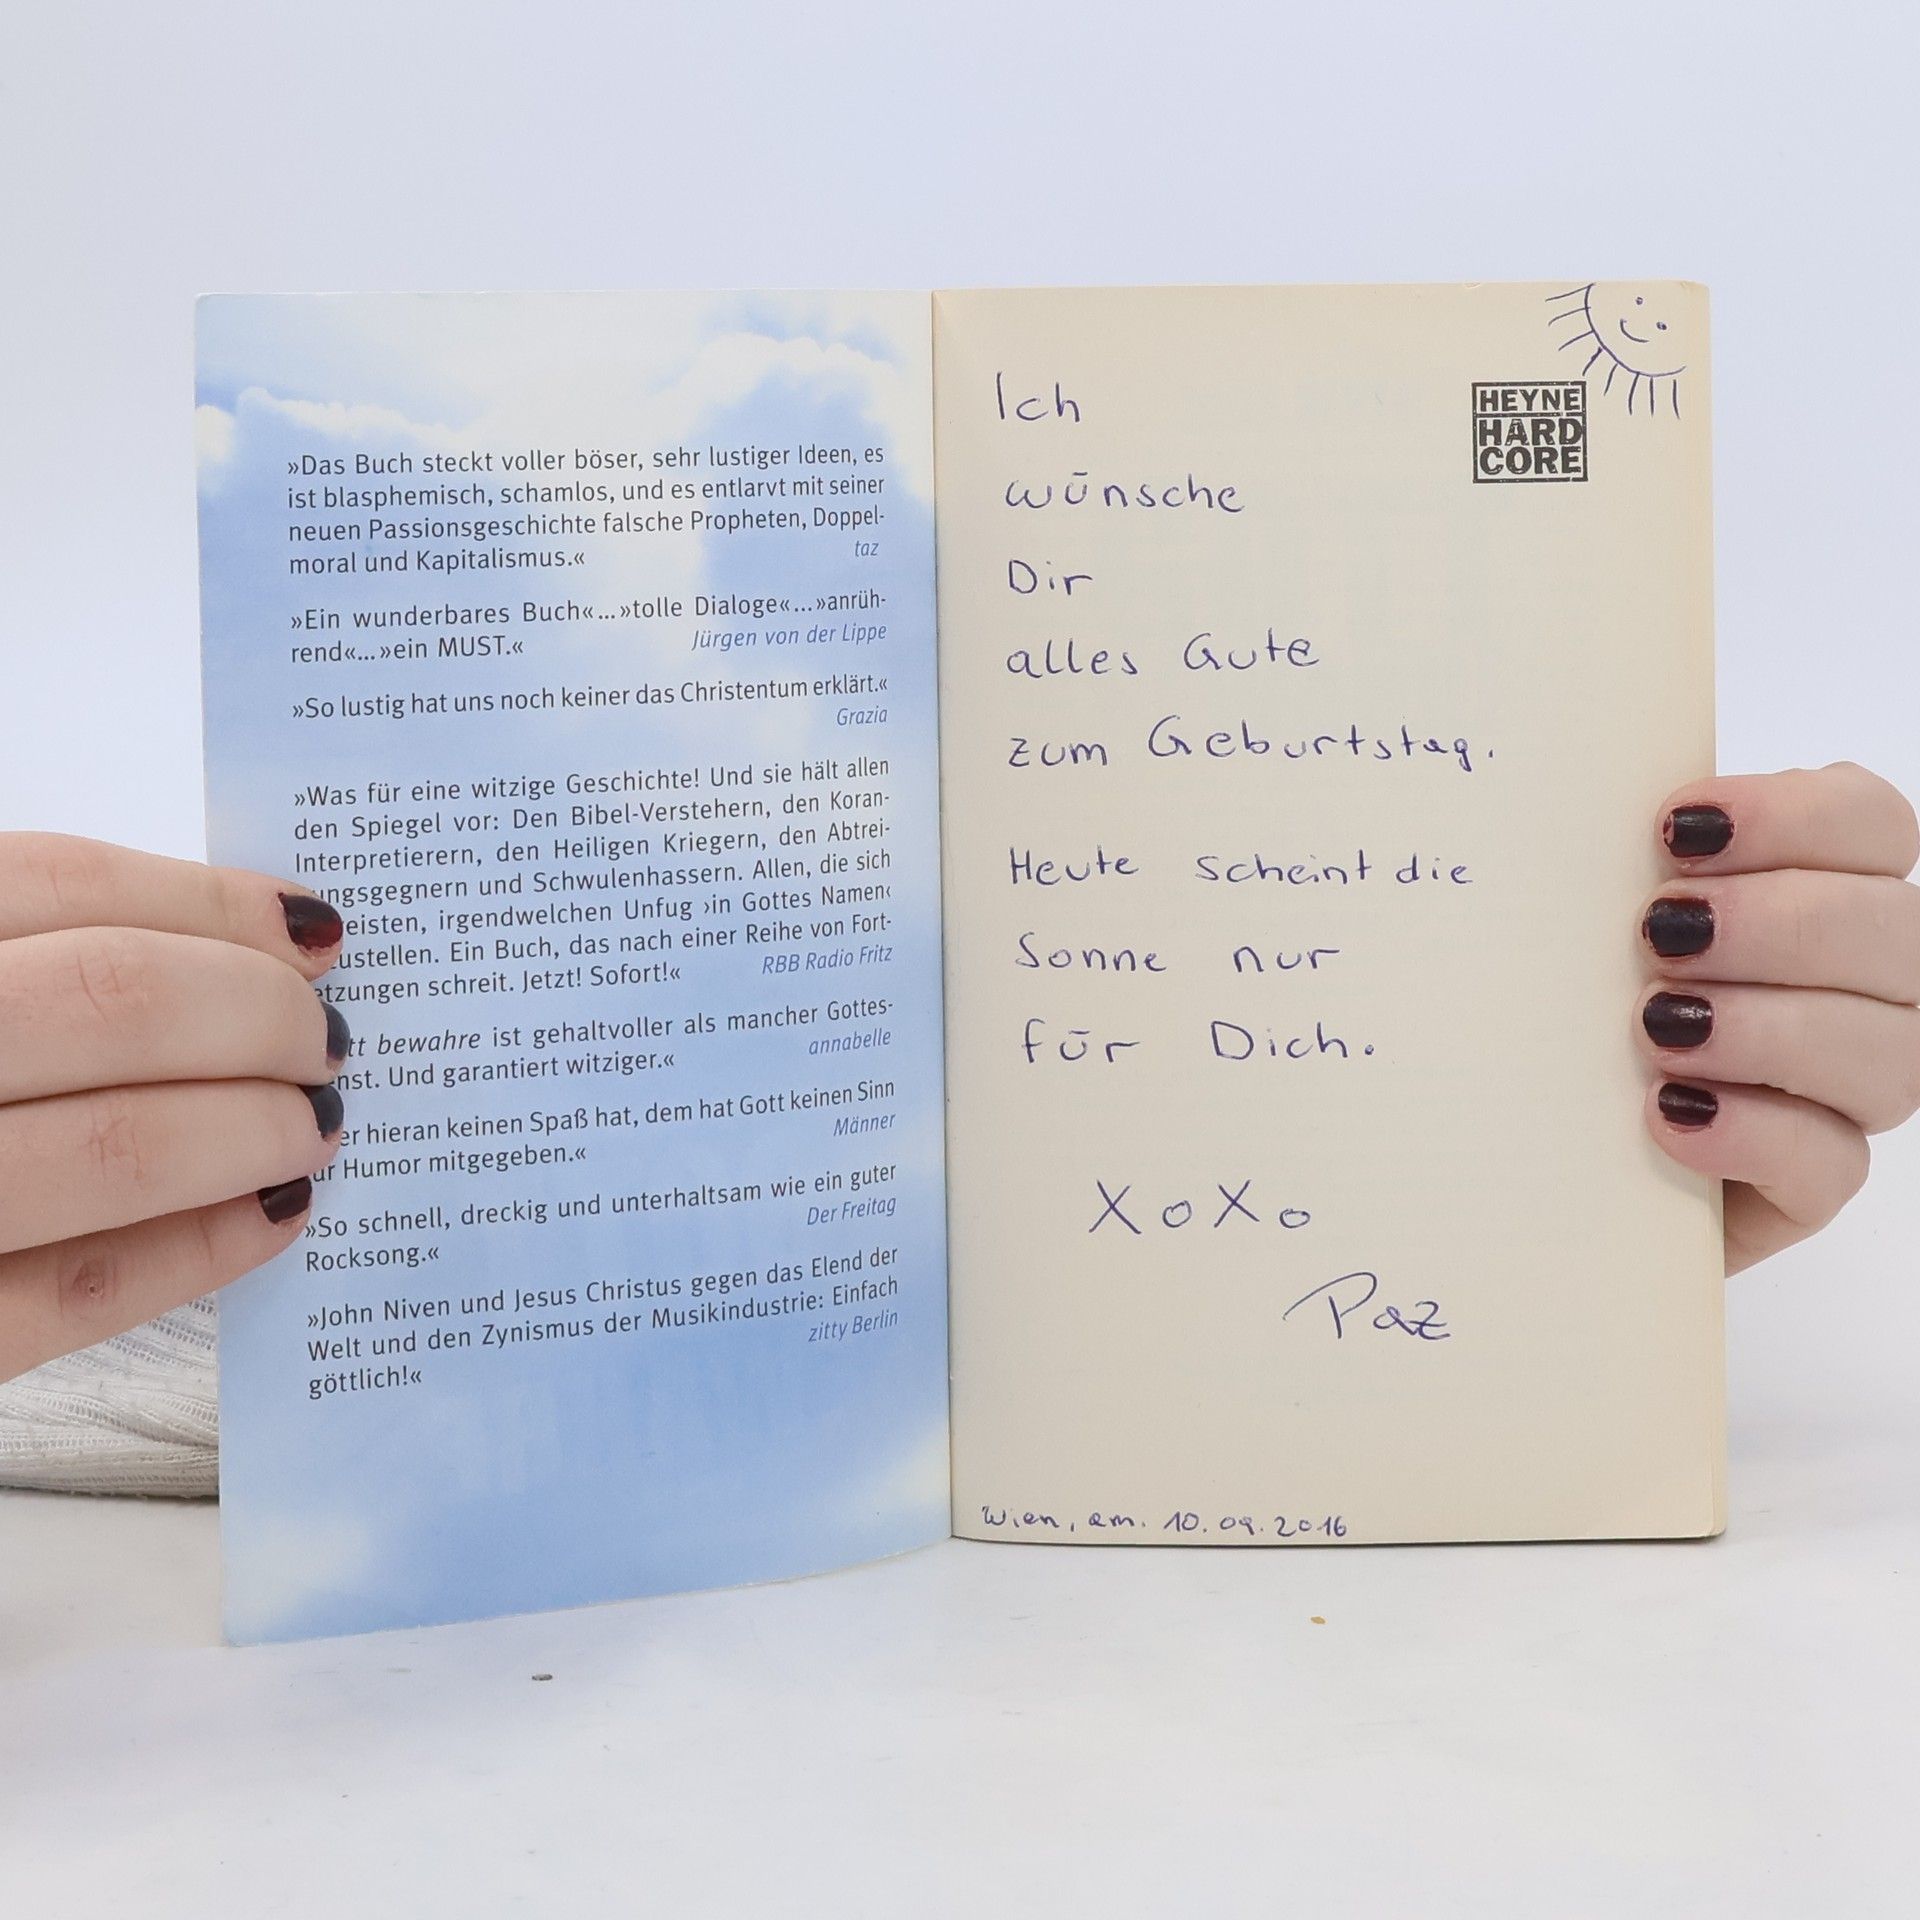 »Das Buch steckt voller böser, sehr lustiger Ideen, es
ist blasphemisch, schamlos, und es entlarvt mit seiner
neuen Passionsgeschichte falsche Propheten, Doppel-
moral und Kapitalismus.« taz
»Ein wunderbares Buch«...»tolle Dialoge«...»anrüh-
rend«...»ein MUST.« Jürgen von der Lippe
»So lustig hat uns noch keiner das Christentum erklärt.«
Grazia
»Was für eine witzige Geschichte! Und sie hält allen
den Spiegel vor: Den Bibel-Verstehern, den Koran-
Interpretierern, den Heiligen Kriegern, den Abtrei-
ungsgegnern und Schwulenhassern. Allen, die sich
eisten, irgendwelchen Unfug ›in Gottes Namen‹
ustellen. Ein Buch, das nach einer Reihe von Fort-
etzungen schreit. Jetzt! Sofort!« RBB Radio Fritz
tt bewahre ist gehaltvoller als mancher Gottes-
nst. Und garantiert witziger.« annabelle
er hieran keinen Spaß hat, dem hat Gott keinen Sinn
ür Humor mitgegeben.« Männer
»So schnell, dreckig und unterhaltsam wie ein guter
Rocksong.« Der Freitag
»John Niven und Jesus Christus gegen das Elend der
Welt und den Zynismus der Musikindustrie: Einfach
göttlich!« zitty Berlin
HEYNE
HARD
CORE
Ich
wünsche
Dir
alles Gute
zum Geburtstag.
Heute scheint die
Sonne nur
für Dich.
XoXo
Paz
Wien, am. 10.09.2016